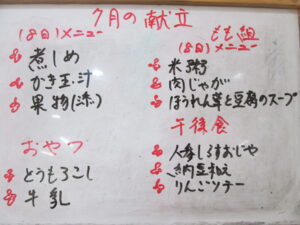 7月の献立
(8日)メニュー
煮しめ
かき玉汁
果物(添)
おやつ
とうもろこし
牛乳
もも組
(8日)メニュー
米粥
肉じゃが
ほうれん草と豆腐のスープ
午後食
人参しらすおじや
納豆和え
りんごソテー